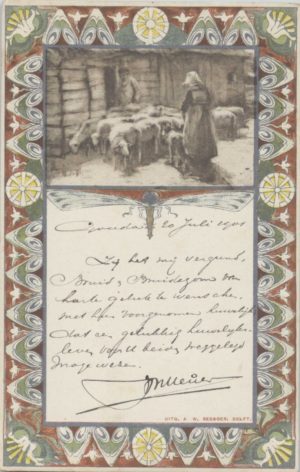 Gouda 20 Juli 1901
Zij het mij vergund,
Bruid & Bruidegom van
harte geluk te wenschen
met hun voorgenomen huwelijk
dat een gelukkig huwelijks-
leven voor U beiden weggelegd
moge wezen.
UITG. A. W. SEGBOER, DELFT.